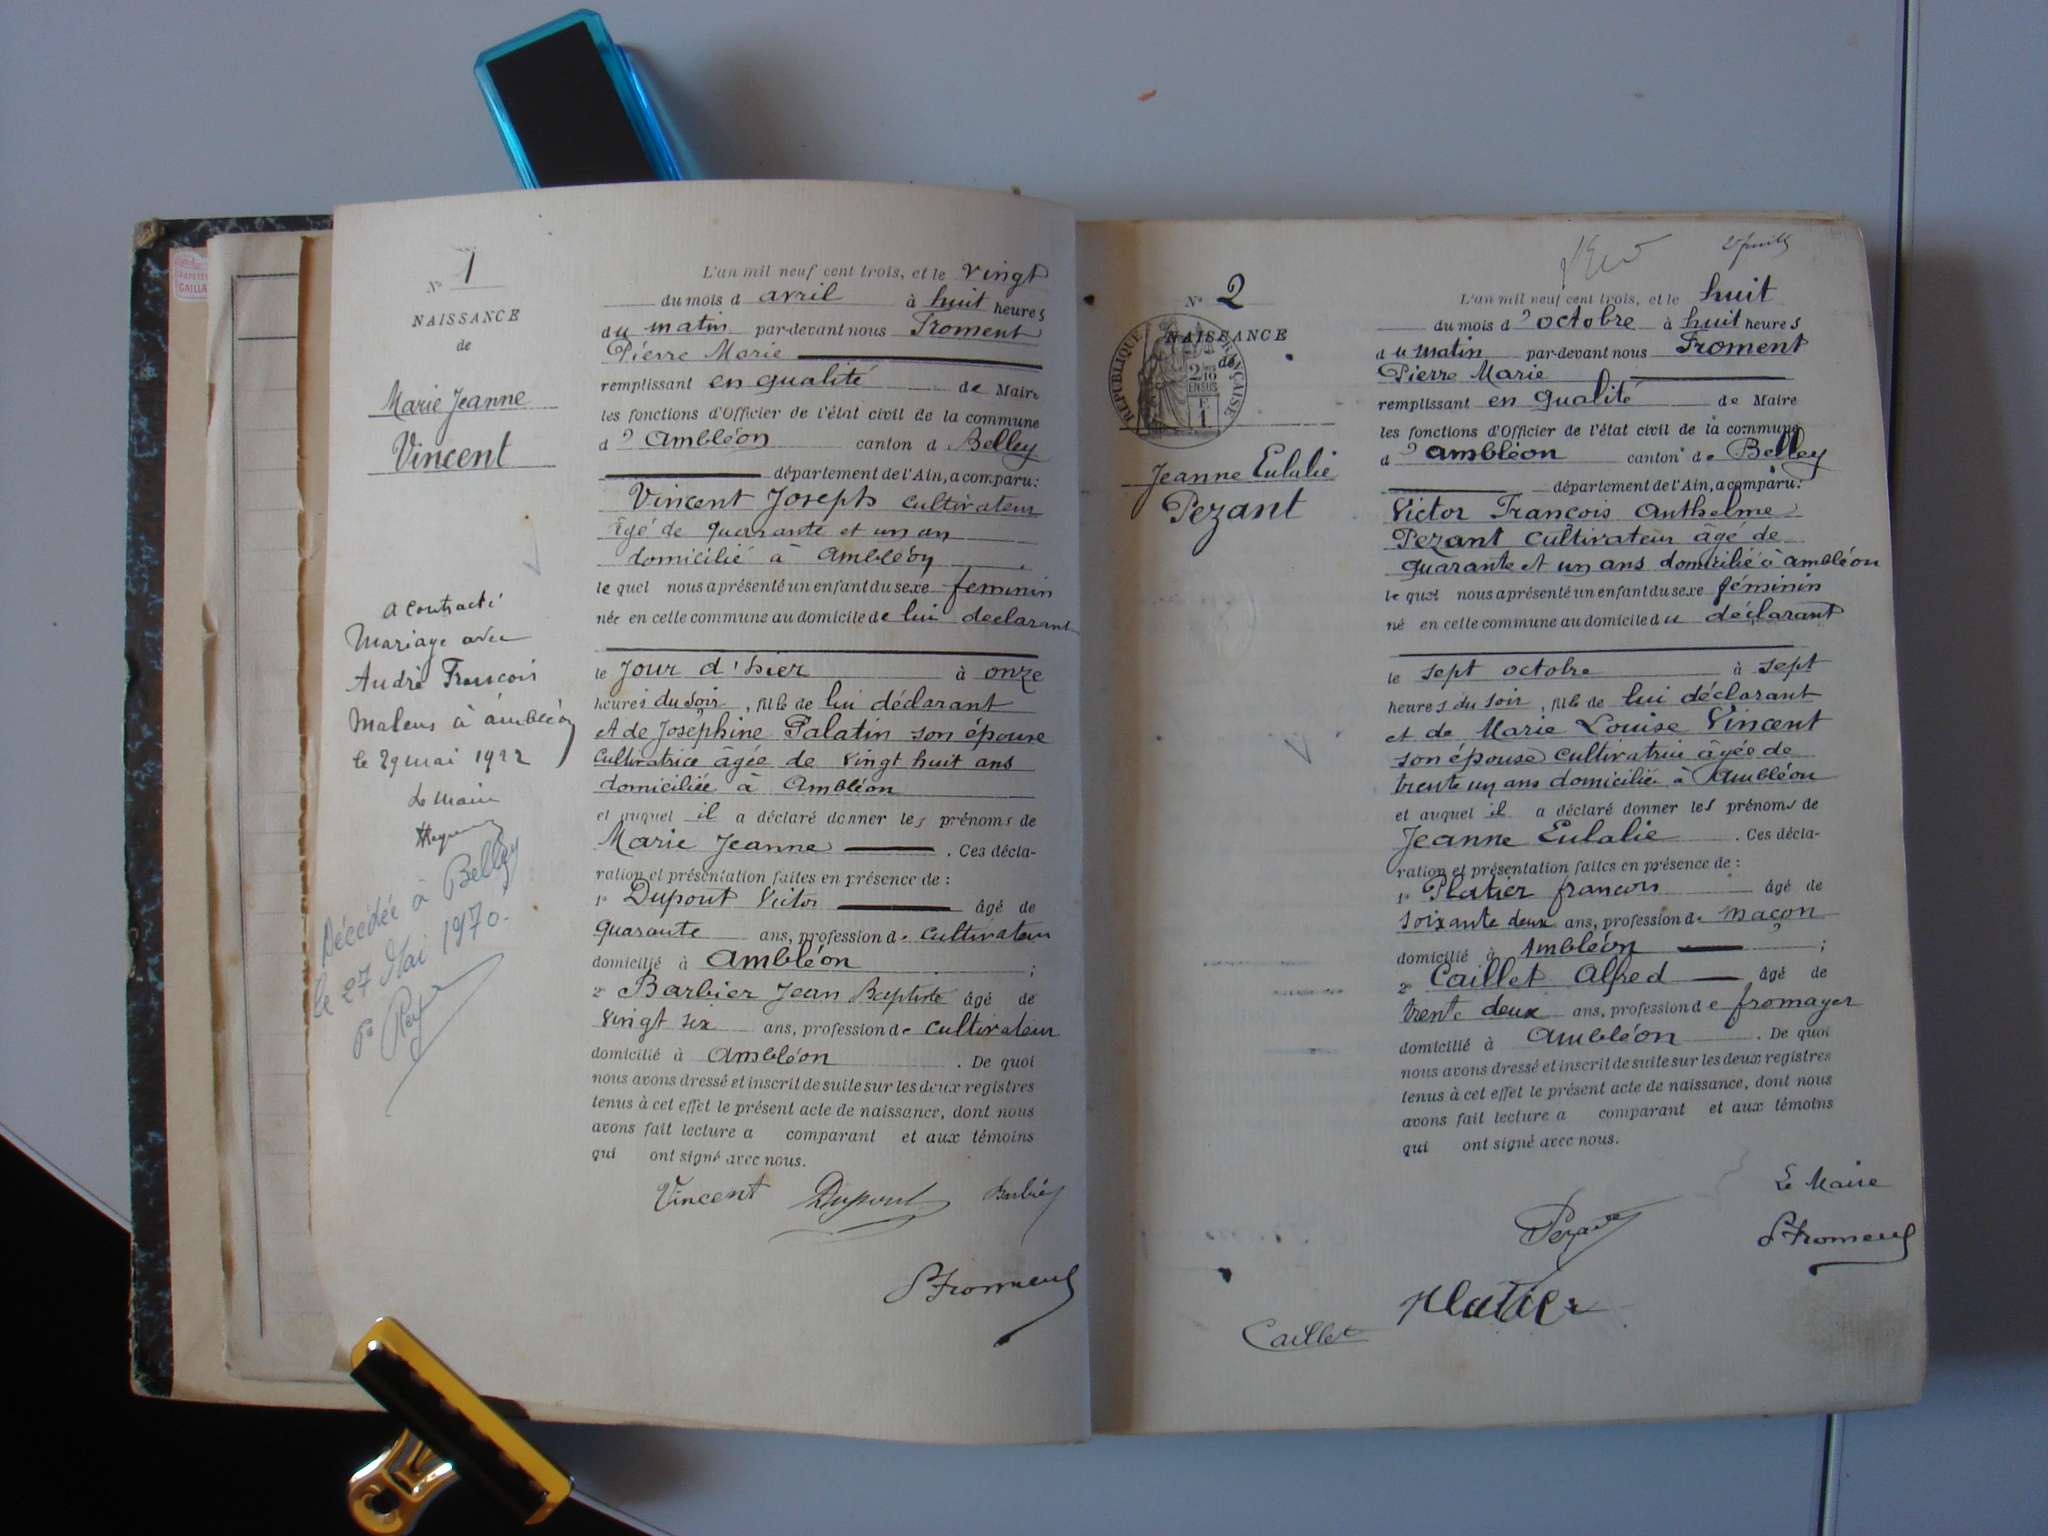 N° 1
NAISSANCE
de
Marie Jeanne
Vincent
a contracté
Mariage avec
André François
à ambléon
le 29 mai 1922
Le Maire
Décédée à Belley
le 27 Mai 1970.
L'an mil neuf cent trois, et le vingt
du mois d avril à huit heures
du matin par-devant nous Froment
Pierre Marie
remplissant en qualité de Maire
les fonctions d'Officier de l'état civil de la commune
d' Ambléon canton d Belley
département de l'Ain, a comparu:
Vincent Joseph cultivateur
âgé de quarante et un an
domicilié à Ambléon
le quel nous a présenté un enfant du sexe féminin
née en cette commune au domicile de lui déclarant
le jour d'hier à onze
heures du soir, fille de lui déclarant
et de Joséphine Palatin son épouse
cultivatrice âgée de vingt huit ans
domiciliée à Ambléon
et auquel il a déclaré donner les prénoms de
Marie Jeanne . Ces décla-
ration et présentation faites en présence de :
1° Dupont Victor âgé de
quarante ans, profession de cultivateur
domicilié à Ambléon ;
2° Barbier Jean Baptiste âgé de
vingt six ans, profession de cultivateur
domicilié à Ambléon . De quoi
nous avons dressé et inscrit de suite sur les deux registres
tenus à cet effet le présent acte de naissance, dont nous
avons fait lecture a comparant et aux témoins
qui ont signé avec nous.
Vincent Dupont Barbier
P Froment
N° 2
NAISSANCE
de
RÉPUBLIQUE FRANÇAISE
Jeanne Eulalie
Pezant
L'an mil neuf cent trois, et le huit
du mois d' octobre à huit heures
du matin par-devant nous Froment
Pierre Marie
remplissant en qualité de Maire
les fonctions d'Officier de l'état civil de la commune
d' Ambléon canton de Belley
département de l'Ain, a comparu:
Victor François Anthelme
Pezant cultivateur âgé de
quarante et un ans domicilié à ambléon
le quel nous a présenté un enfant du sexe féminin
né en cette commune au domicile du déclarant
le sept octobre à sept
heures du soir, fille de lui déclarant
et de Marie Louise Vincent
son épouse cultivatrice âgée de
trente un ans domiciliée à Ambléon
et auquel il a déclaré donner les prénoms de
Jeanne Eulalie . Ces décla-
ration et présentation faites en présence de :
1° Platier françois âgé de
soixante deux ans, profession de maçon
domicilié à Ambléon ;
2° Caillet Alfred âgé de
trente deux ans, profession de fromager
domicilié à Ambléon . De quoi
nous avons dressé et inscrit de suite sur les deux registres
tenus à cet effet le présent acte de naissance, dont nous
avons fait lecture a comparant et aux témoins
qui ont signé avec nous.
Le Maire
Pezant P Froment
Platier
Caillet